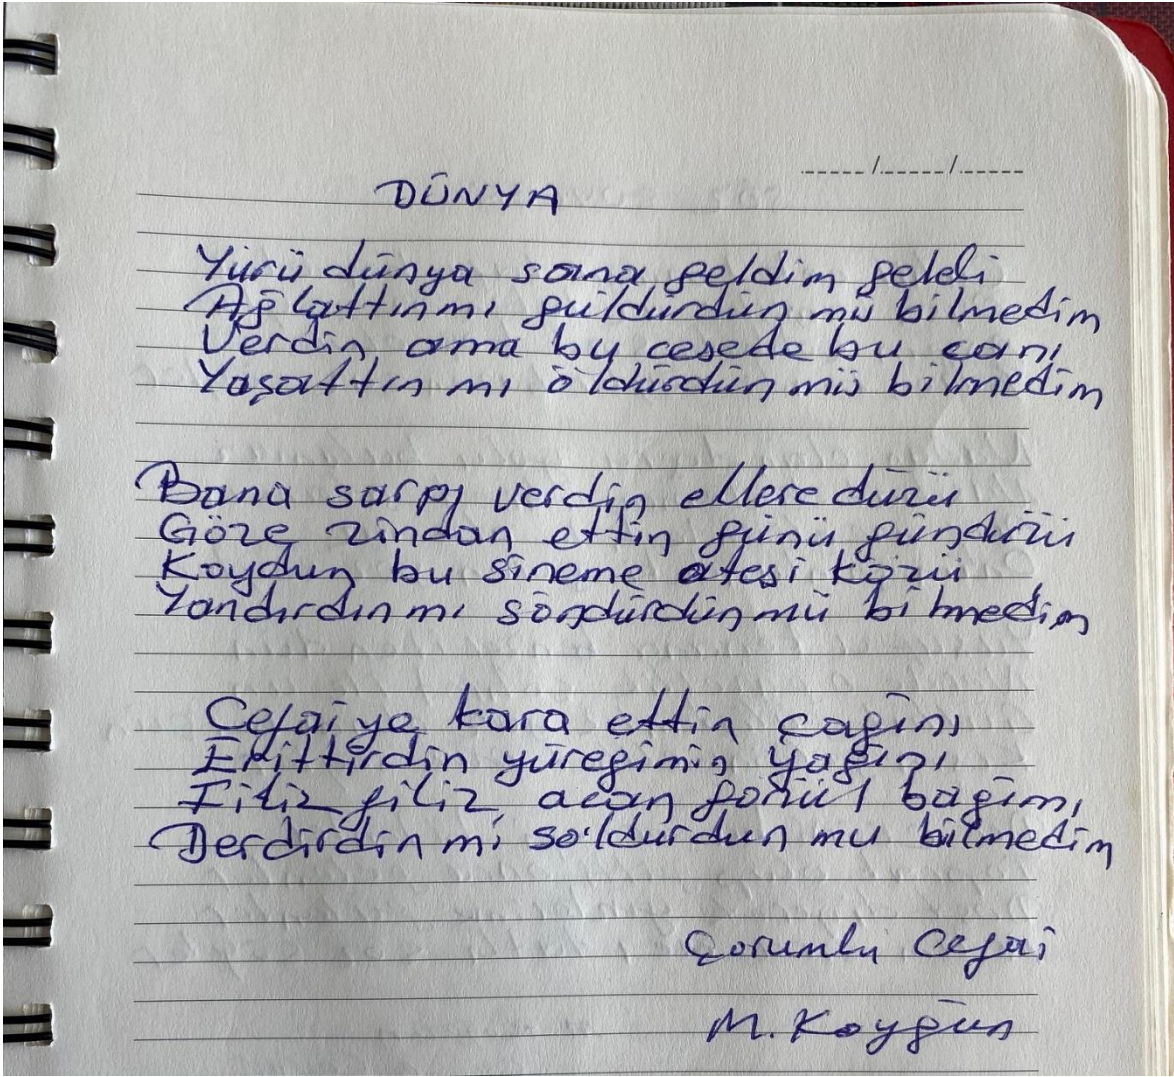 DÜNYA
Yürü dünya sana geldim geleli
Ağlattın mı güldürdün mü bilmedim
Verdin ama bu cesede bu canı
Yaşattın mı öldürdün mü bilmedim
Bana sarpı verdin ellere düzü
Göze zindan ettin günü gündüzü
Koydun bu sineme ateşi közü
Yandırdın mı söndürdün mü bilmedim
Cefaiye kara ettin çağını
Erittirdin yüreğimin yağını
Filiz filiz açan gönül bağımı
Derdirdin mi soldurdun mu bilmedim
Çorumlu Cefai
M. Koygun